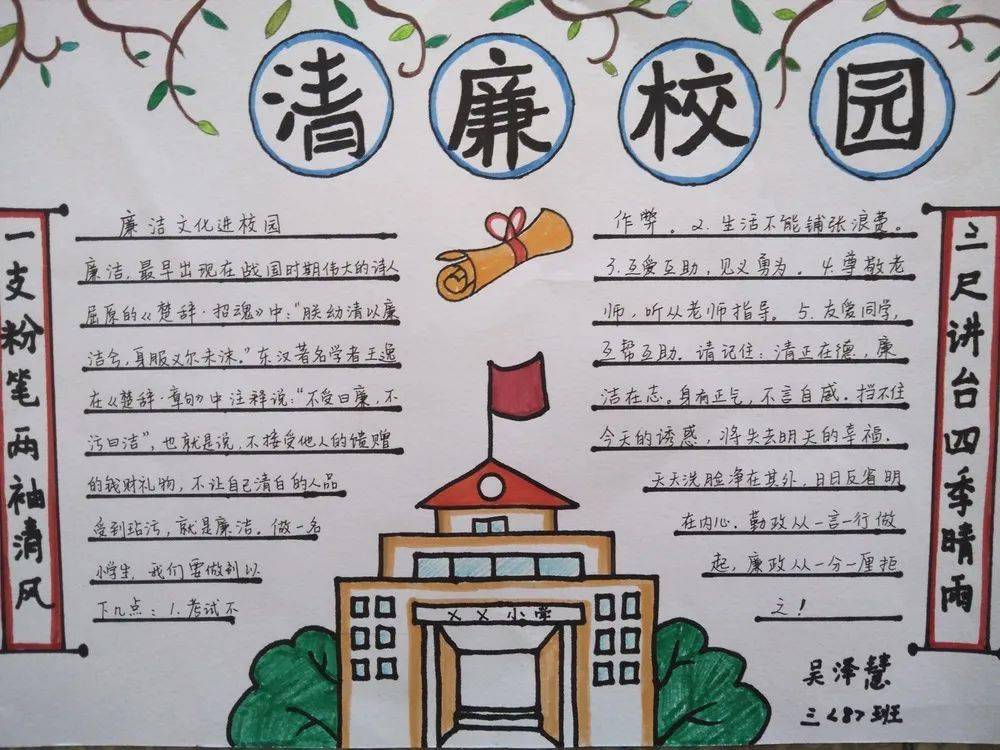 清廉校园
一支粉笔两袖清风
廉洁文化进校园
廉洁，最早出现在战国时期伟大的诗人
屈原的《楚辞·招魂》中："朕幼清以廉
洁兮，身服义尔未沫。"东汉著名学者王逸
在《楚辞·章句》中注释说："不受曰廉，不
污曰洁"，也就是说，不接受他人的馈赠
的钱财礼物，不让自己清白的人品
受到玷污，就是廉洁。做一名
小学生，我们要做到以
下几点：1.考试不
作弊。2.生活不能铺张浪费。
3.互爱互助，见义勇为。4.尊敬老
师，听从老师指导。5.友爱同学，
互帮互助。请记住：清正在德，廉
洁在志。身有正气，不言自威。挡不住
今天的诱惑，将失去明天的幸福。
天天洗脸净在其外，日日反省明
在内心。勤政从一言一行做
起，廉政从一分一厘拒
之！
三尺讲台四季晴雨
XX小学
吴泽慧
三〈8〉班